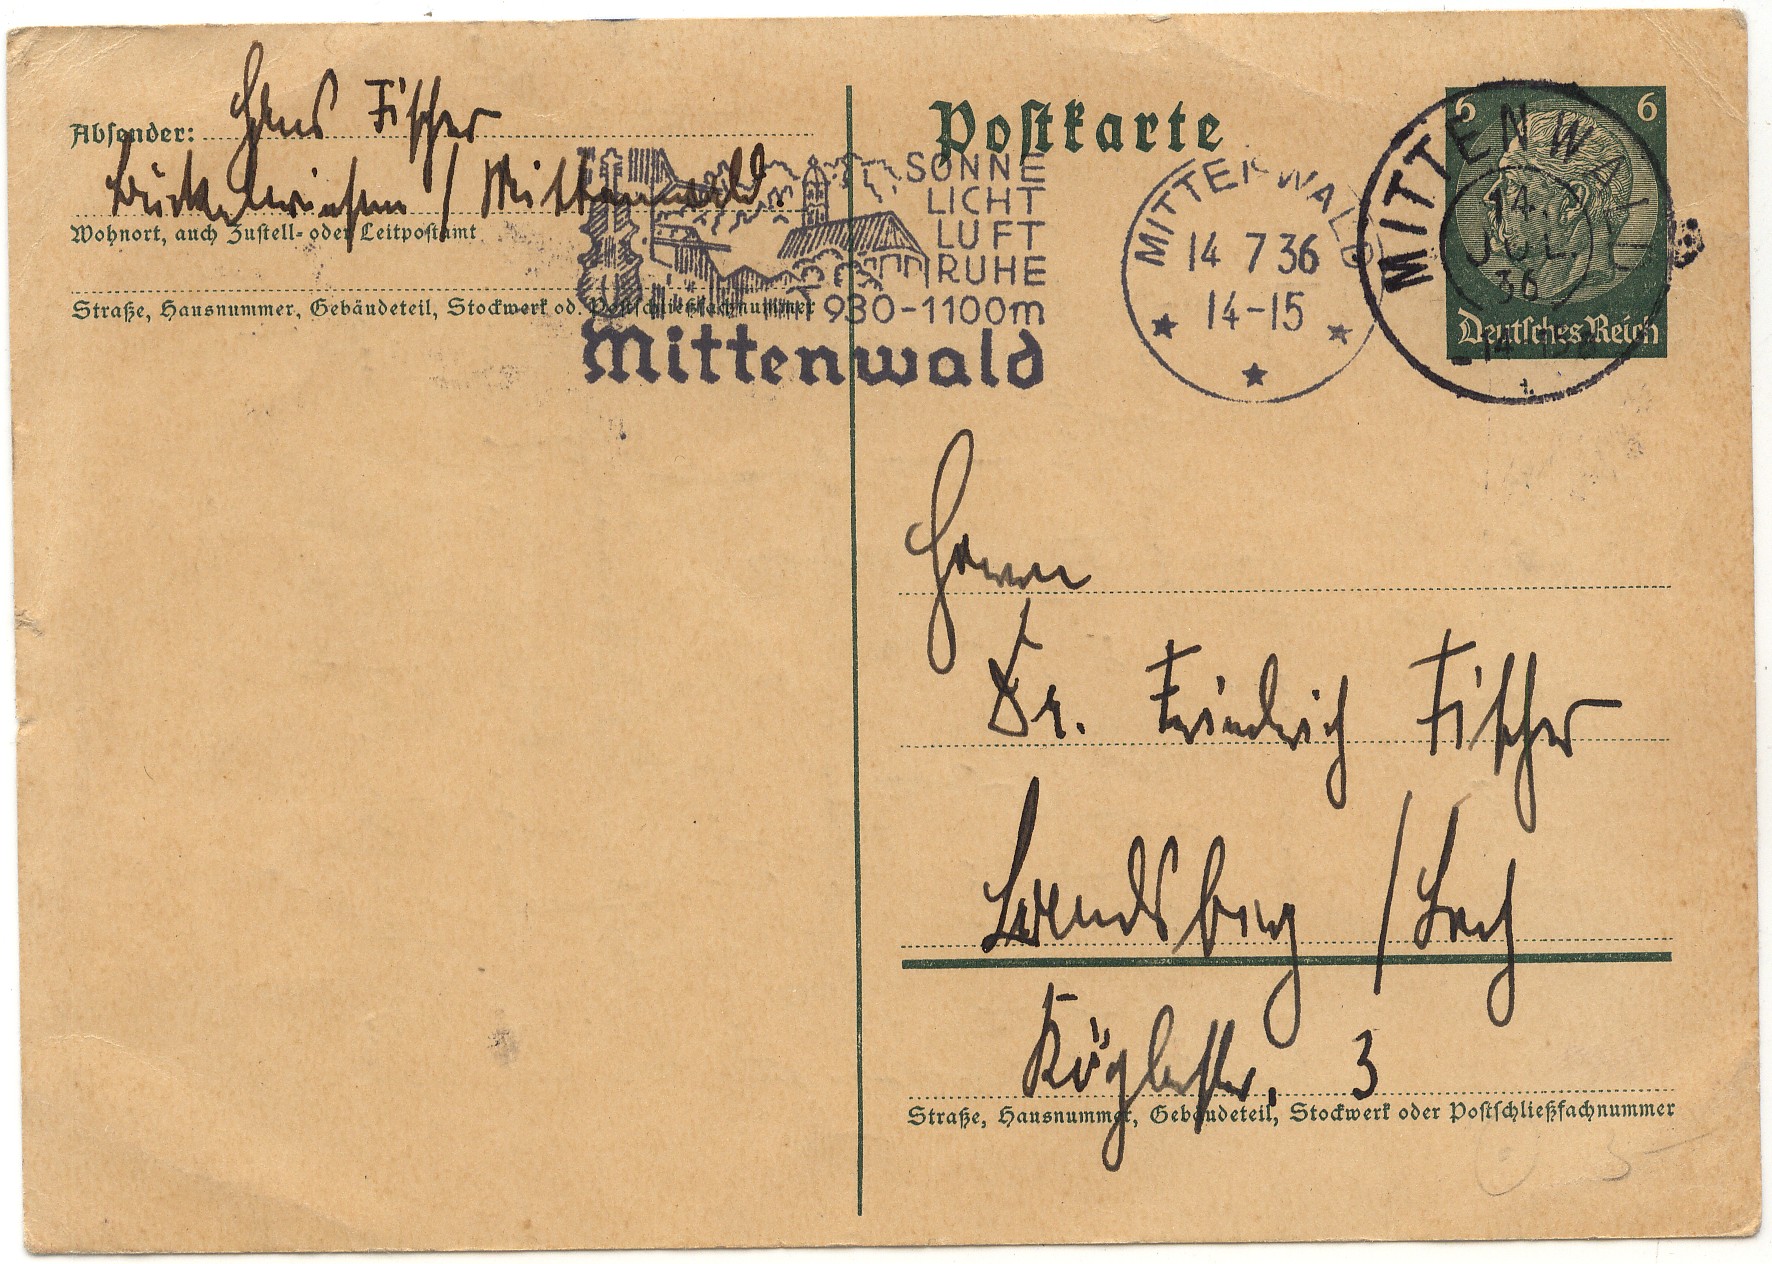 Postkarte
Absender: Hans Fischer
/ Mittenwald.
Wohnort, auch Zustell- oder Leitpostamt
Straße, Hausnummer, Gebäudeteil, Stockwerk od. Postschließfachnummer
SONNE
LICHT
LUFT
RUHE
930-1100m
Mittenwald
MITTENWALD
14 7 36
14-15
MITTENWALD
14.
JUL.
36
6 6
Deutsches Reich
Herrn
Dr. Friedrich Fischer
Landsberg / Lech
Köglstr. 3
Straße, Hausnummer, Gebäudeteil, Stockwerk oder Postschließfachnummer